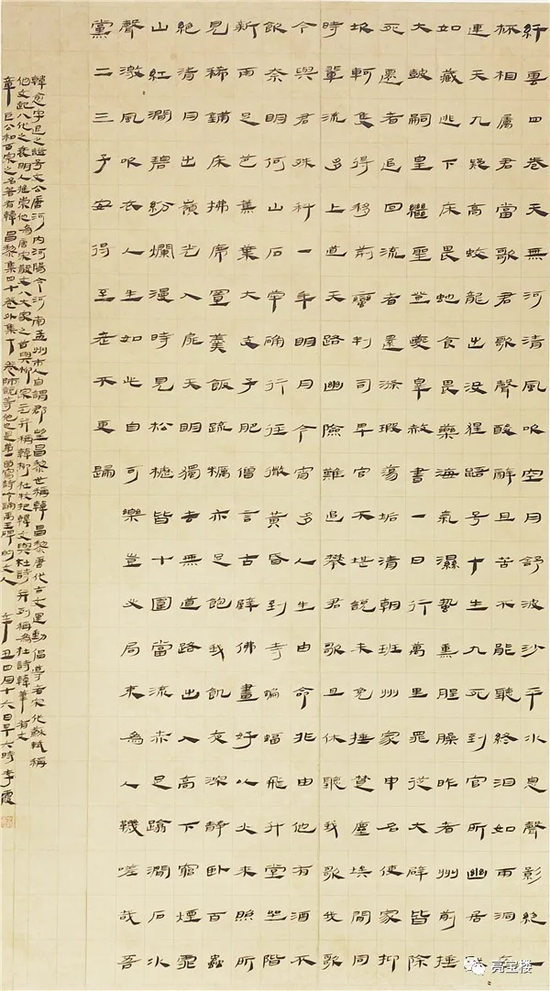 纤雲四卷天無河清風吹空月舒波沙平水息聲影絕一
杯相屬君當歌君歌聲酸辭且苦不能聽終淚如雨洞庭
連天九疑高蛟龍出沒猩鼯号十生九死到官所幽居默
如藏逃下床畏蛇食畏藥海氣濕蟄熏腥臊昨者州前捶
大鼓嗣皇繼聖登夔皋赦書一日行萬里罪從大辟皆除
死遷者追回流者還滌瑕蕩垢清朝班州家申名使家抑
坎軻隻得移荊蠻判司卑官不堪說未免捶楚塵埃間同
時輩流多上道天路幽險難追攀君歌且休聽我歌我歌
今與君殊科一年明月今宵多人生由命非由他有酒不
飲奈明何山石犖确行徑微黃昏到寺蝙蝠飛升堂坐階
新雨足芭蕉葉大支子肥僧言古壁佛畫好以火來照所
見稀鋪床拂席置羹飯疏糲亦足飽我飢夜深靜臥百蟲
絕清月出嶺光入扉天明獨去無道路出入高下窮煙霏
山紅澗碧紛爛漫時見松櫪皆十圍當流赤足蹋澗石水
聲激風吹衣人生如此自可樂豈必局束為人鞿嗟哉吾
黨二三子安得至老不更歸
韓愈字退之謚号文公唐河内河陽今河南孟州市人自謂郡望昌黎世稱韓昌黎唐代古文運動倡導者宋代蘇軾稱
他文起八代之衰明人推崇他為唐宋散文八大家之首與柳宗元并稱韓柳杜牧把韓文與杜詩并列稱為杜詩韓筆有文
章巨公和百家之名著有韓昌黎集四十卷外集十卷師說等他也是第一 的文人 辛丑四月十六日早六時李霞
亮宝楼